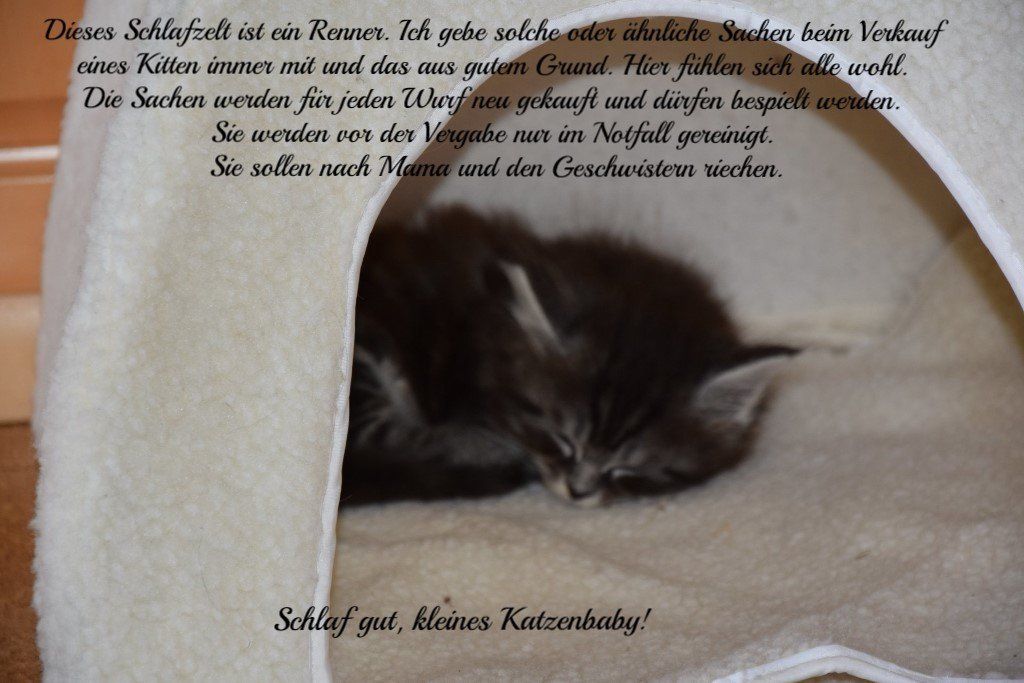 Dieses Schlafzelt ist ein Renner. Ich gebe solche oder ähnliche Sachen beim Verkauf
eines Kitten immer mit und das aus gutem Grund. Hier fühlen sich alle wohl.
Die Sachen werden für jeden Wurf neu gekauft und dürfen bespielt werden.
Sie werden vor der Vergabe nur im Notfall gereinigt.
Sie sollen nach Mama und den Geschwistern riechen.
Schlaf gut, kleines Katzenbaby!